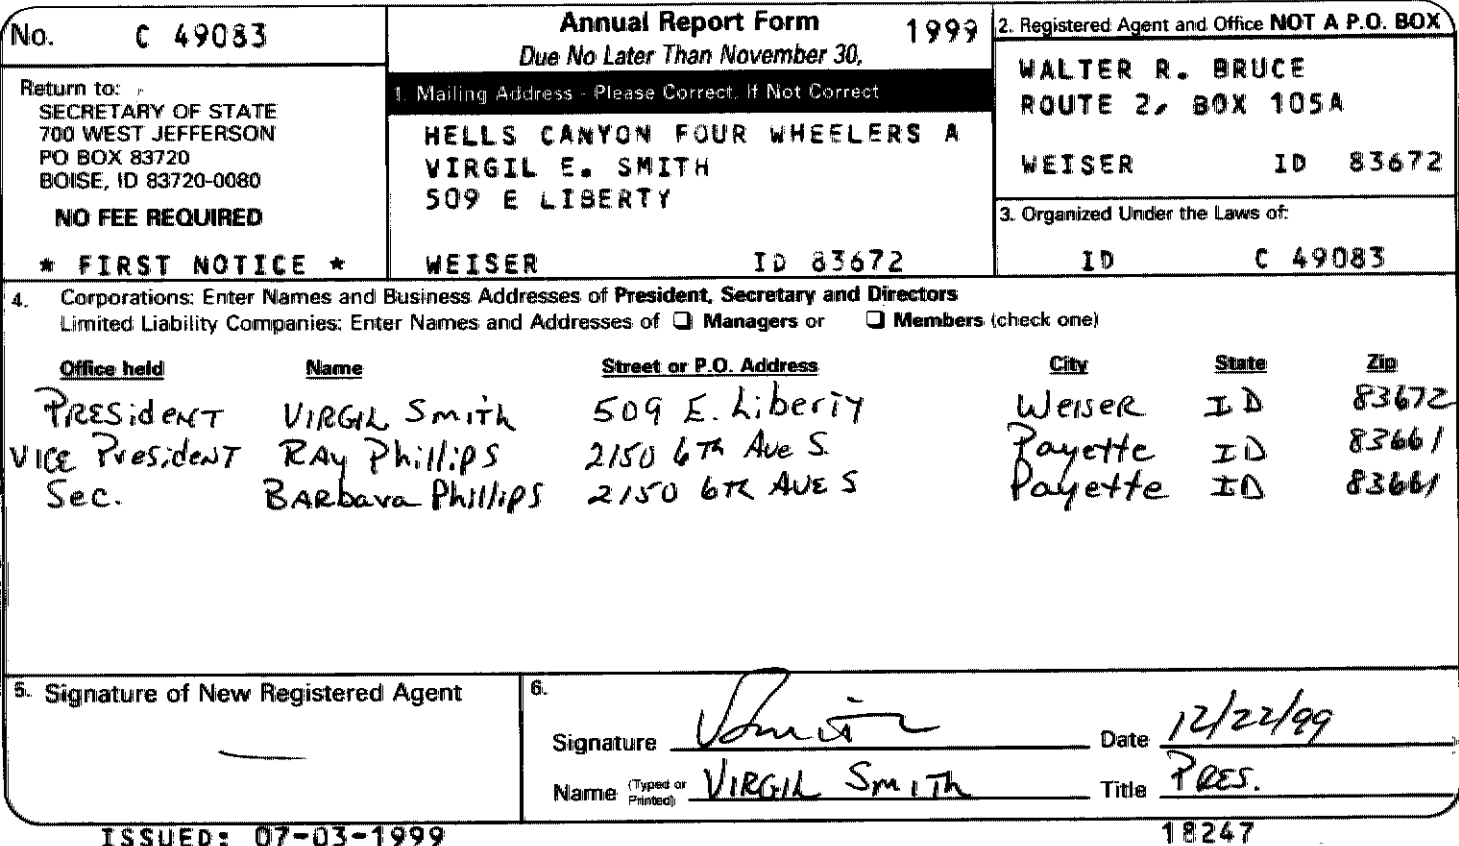 No. C 49083
Return to:
SECRETARY OF STATE
700 WEST JEFFERSON
PO BOX 83720
BOISE, ID 83720-0080
NO FEE REQUIRED
* FIRST NOTICE *
Annual Report Form 1999
Due No Later Than November 30,
1. Mailing Address - Please Correct, If Not Correct
HELLS CANYON FOUR WHEELERS A
VIRGIL E. SMITH
509 E LIBERTY
WEISER ID 83672
2. Registered Agent and Office NOT A P.O. BOX
WALTER R. BRUCE
ROUTE 2, BOX 105A
WEISER ID 83672
3. Organized Under the Laws of:
ID C 49083
4. Corporations: Enter Names and Business Addresses of President, Secretary and Directors
Limited Liability Companies: Enter Names and Addresses of ❑ Managers or ❑ Members (check one)
Office held Name Street or P.O. Address City State Zip
PRESident VIRGIL Smith 509 E. Liberty Weiser ID 83672
VICE President RAY Phillips 2150 6th Ave S. Payette ID 83661
Sec. BARbara Phillips 2150 6th AVE S Payette ID 83661
5. Signature of New Registered Agent
6.
Signature VSmith Date 12/22/99
Name (Typed or Printed) VIRGIL Smith Title PRES.
ISSUED: 07-03-1999 18247